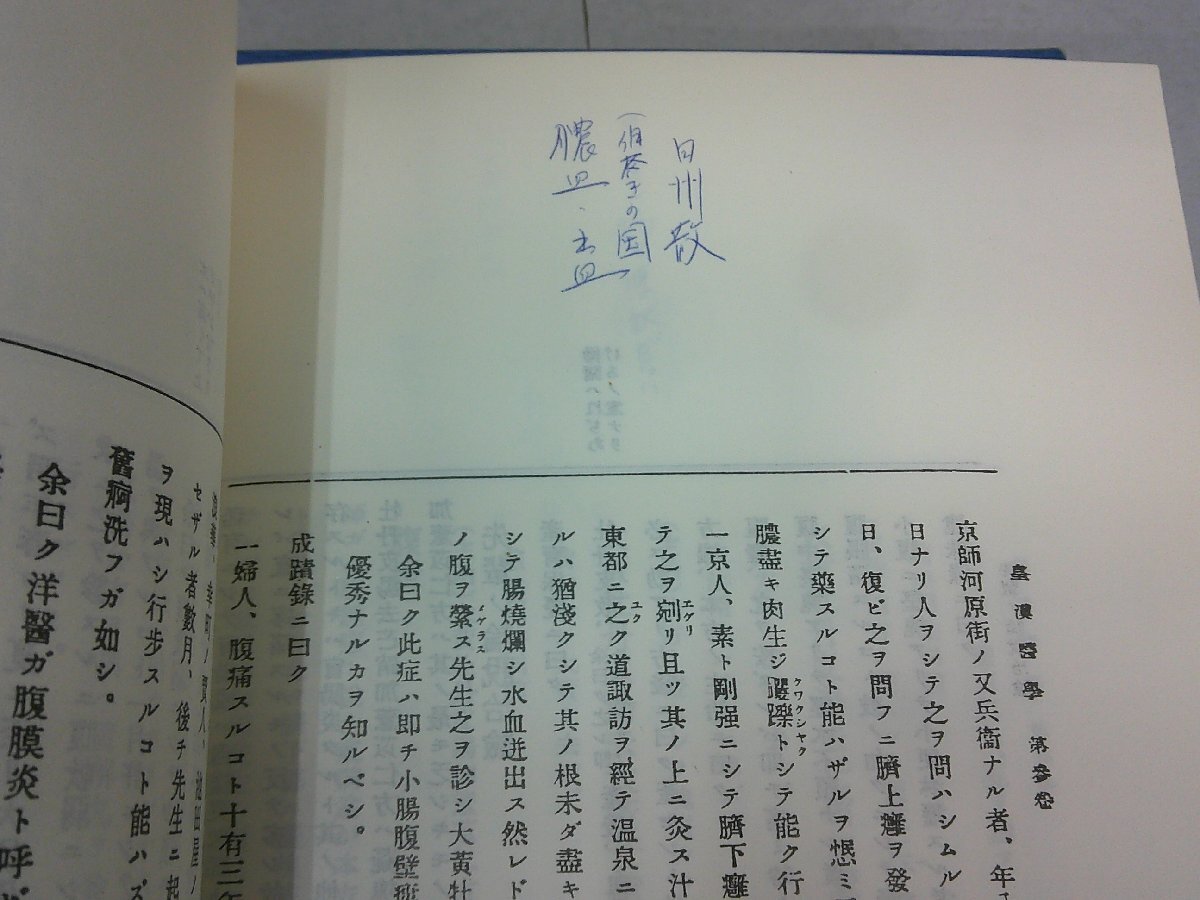 日州散
の国
膿血、
皇漢醫學 第參卷
京師河原街ノ又兵衞ナル者、年
日ナリ人ヲシテ之ヲ問ハシムル
日、復ビ之ヲ問フニ臍上癰ヲ發
シテ藥スルコト能ハザルヲ愍ミ
膿盡キ肉生ジ矍鑠トシテ能ク行
クワクシヤク
一京人、素ト剛强ニシテ臍下癰
テ之ヲ剜リ且ツ其ノ上ニ灸ス汁
エグリ
東都ニ之ク道諏訪ヲ經テ温泉ニ
ユク
ルハ猶淺クシテ其ノ根未ダ盡キ
シテ腸燒爛シ水血迸出ス然レド
ノ腹ヲ縈ス先生之ヲ診シ大黃牡
メグラス
余曰ク此症ハ即チ小腸腹壁
優秀ナルカヲ知ルベシ。
成蹟錄ニ曰ク
一婦人、腹痛スルコト十有三年
幸町ノ賈人、池田屋ノ
セザル者數月、後チ先生ニ起
ヲ現ハシ行步スルコト能ハズ
舊痾洗フガ如シ。
余曰ク洋醫ガ腹膜炎ト呼